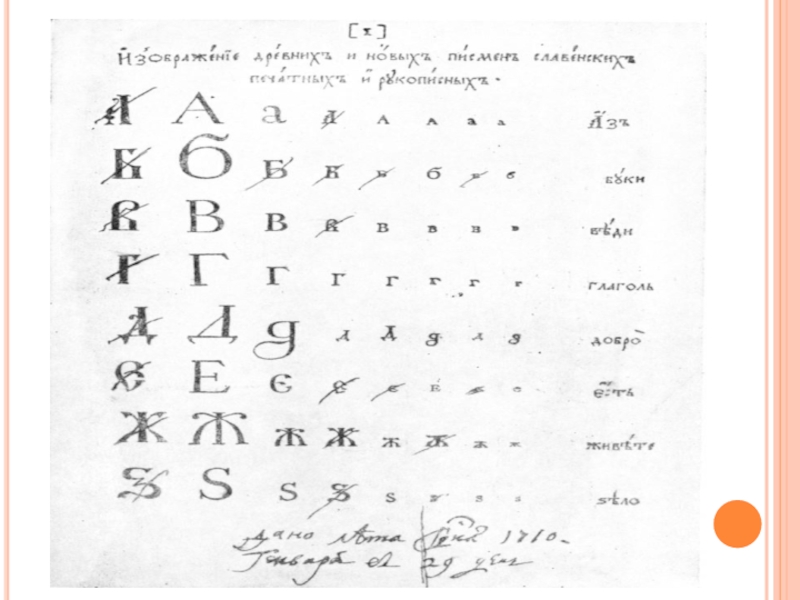 [1]
И҆зѡбраже́нїе дре́внихъ и но́выхъ пи́сменъ славе́нскихъ
печа́тныхъ и҆ рꙋкопи́сныхъ.
А А а а а а а а А҆зъ
Б Б Б Б Б б б б бꙋ́ки
В В В В В в в в вѣ́ди
Г Г Г Г Г г г г глаголь
Д Д д д д д д д добро̀
Е Е є є є е е е є҆́сть
Ж Ж ж ж ж ж ж ж живѣ́те
Ѕ Ѕ ѕ ѕ ѕ ѕ ѕ ѕ ѕѣло
дано лѣта 1710.
Генваря въ 29 день